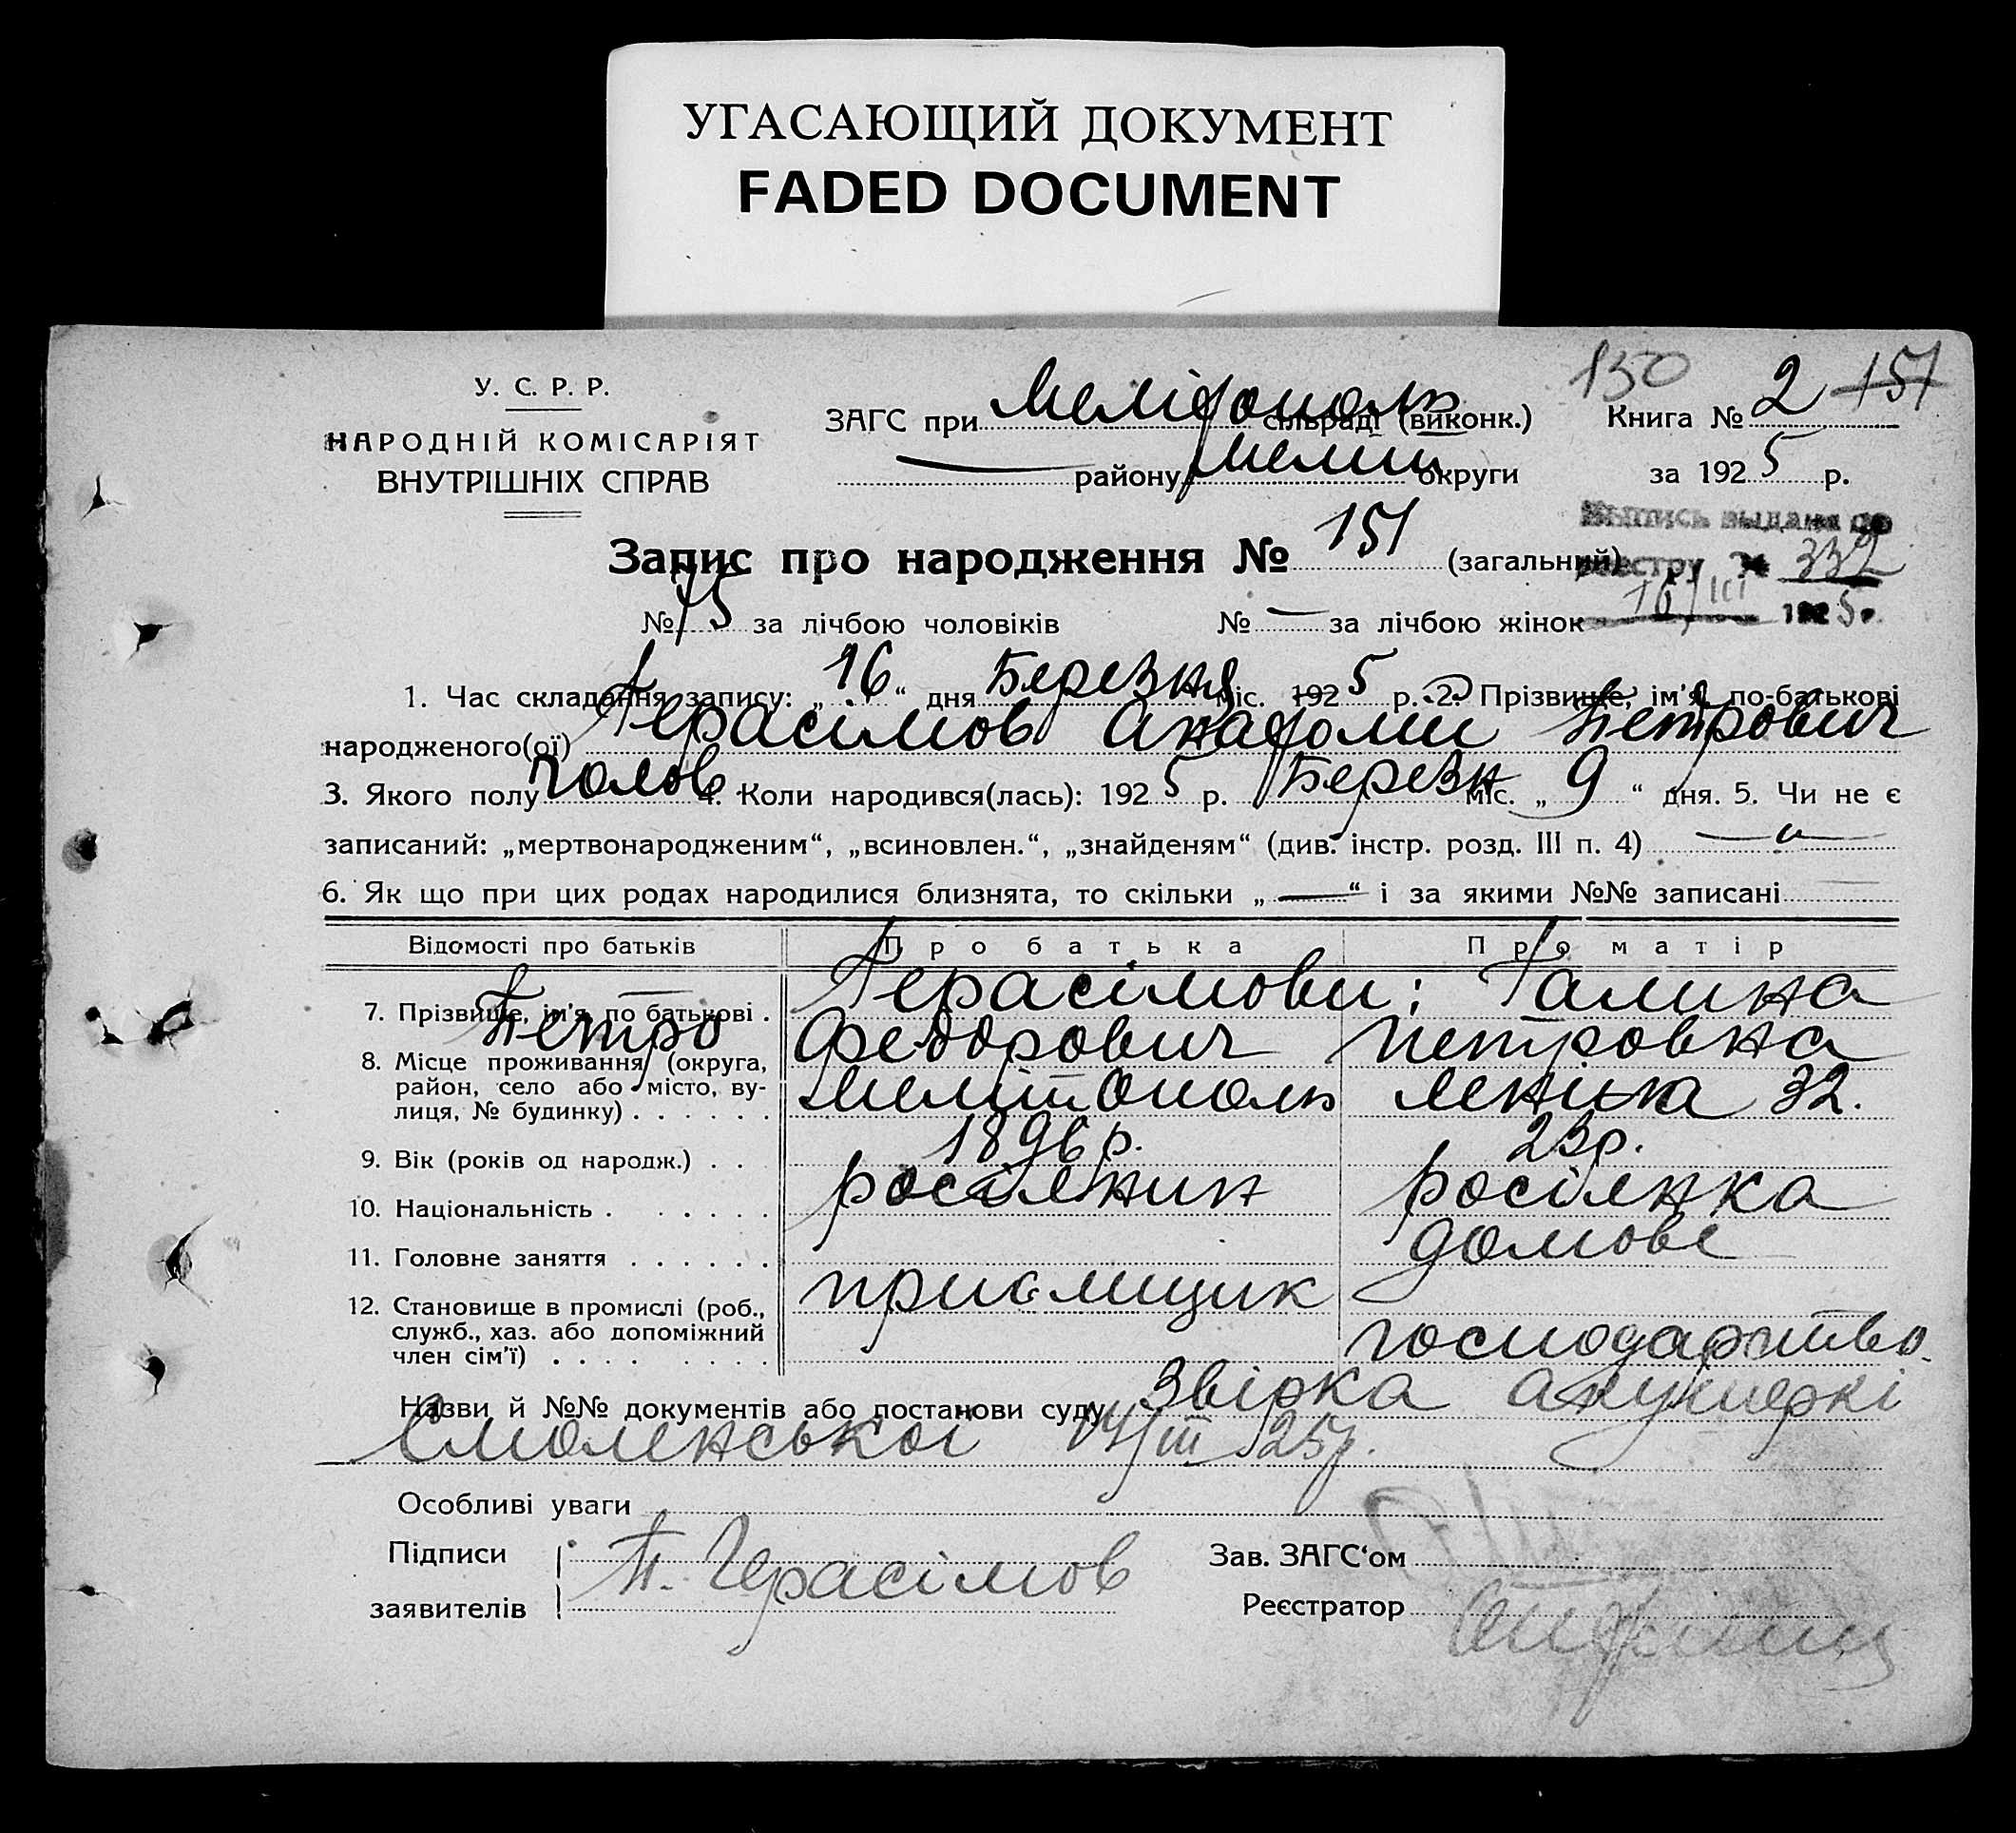 УГАСАЮЩИЙ ДОКУМЕНТ
FADED DOCUMENT
130 151
У. С. Р. Р.
НАРОДНІЙ КОМІСАРІЯТ
ВНУТРІШНІХ СПРАВ
ЗАГС при Мелітополь сільраді (виконк.) Книга № 2
— району Меліт округи за 1925 р.
Выпись выдана по
реестру № 332
16/III 1925 г.
Запис про народження № 151 (загальний)
№ 75 за лічбою чоловіків № — за лічбою жінок
1. Час складання запису: „16“ дня Березня міс. 1925 р. 2. Прізвище, ім'я, по-батькові
народженого(ої) Герасімов Анатоли Петрович
3. Якого полу чолов. 4. Коли народився(лась): 1925 р. Березн міс. „9“ дня. 5. Чи не є
записаний: „мертвонародженим“, „всиновлен.“, „знайденям“ (див. інстр. розд. III п. 4) — „ —
6. Як що при цих родах народилися близнята, то скільки „—“ і за якими №№ записані
Відомості про батьків Про батька Про матір
7. Прізвище, ім'я, по батькові . Герасімови: Галина
Петро Федорович Петровна
8. Місце проживання (округа,
район, село або місто, ву-
лиця, № будинку) . . . . . . Мелітополь Леніна 32.
9. Вік (років од народж.) . . 1896 р. 23 р.
10. Національність . . . . . . росіянин росіянка
11. Головне заняття . . . . . . домове
12. Становище в промислі (роб.,
служб., хаз. або допоміжний
член сім'ї) . . . . . . . . приамщик господарство.
Назви й №№ документів або постанови суду Звірка акушеркі
Смоленської 14/III 25р.
Особливі уваги
Підписи
заявителів П. Герасімов
Зав. ЗАГС'ом
Реєстратор